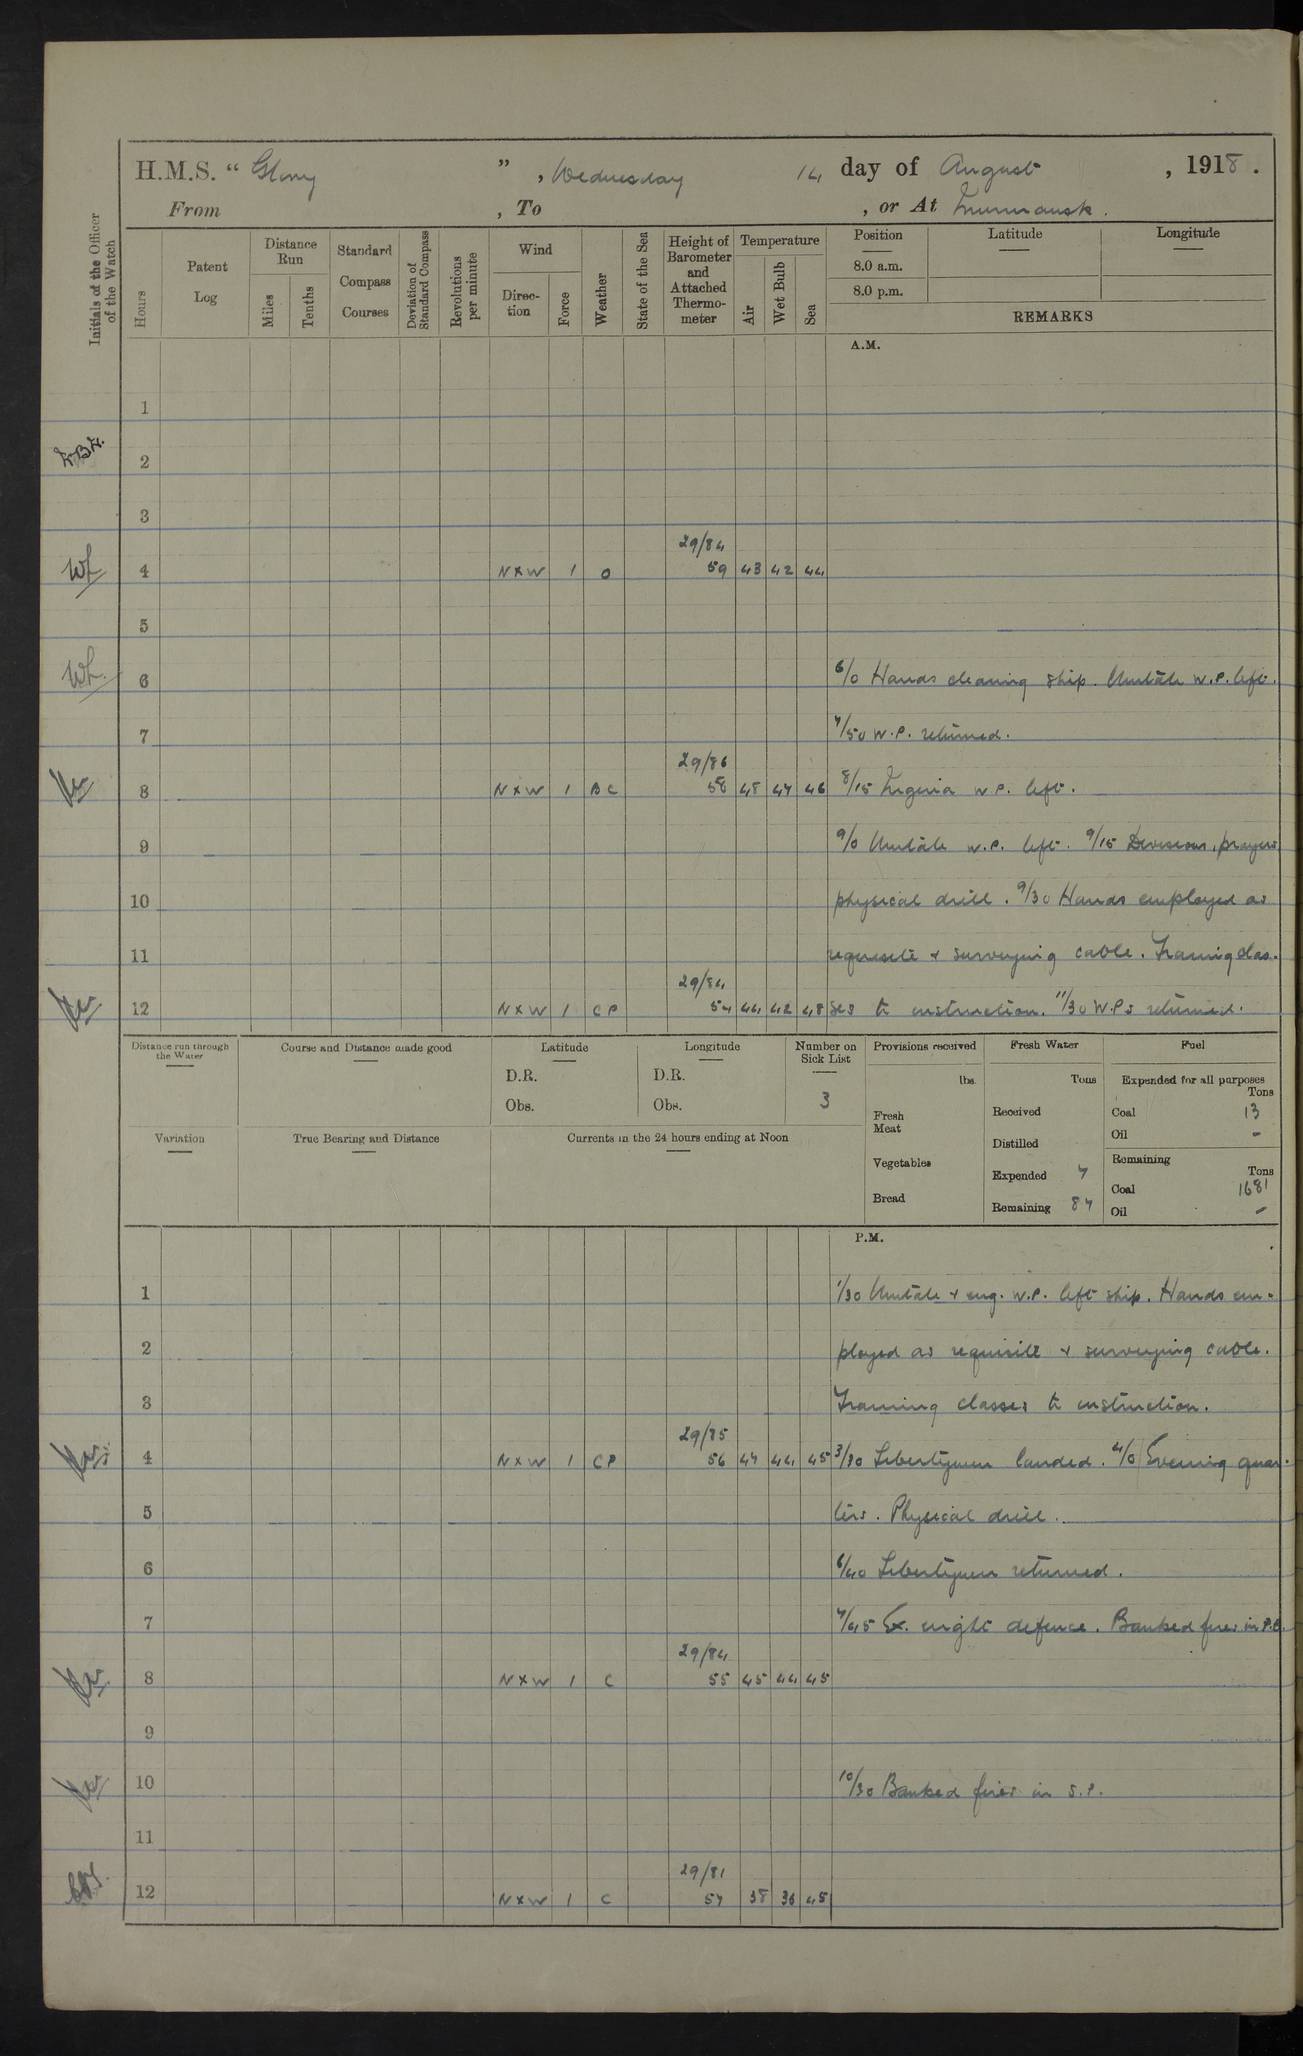 H.M.S. “ Glory ” , Wednesday 14 day of August , 1918 .
From , To , or At Murmansk .
Initials of the Officer of the Watch
Hours
Patent Log
Distance Run
Miles
Tenths
Standard Compass Courses
Deviation of Standard Compass
Revolutions per minute
Wind
Direc-tion
Force
Weather
State of the Sea
Height of Barometer and Attached Thermo-meter
Temperature
Air
Wet Bulb
Sea
Position
8.0 a.m.
8.0 p.m.
Latitude
Longitude
REMARKS
A.M.
1
2
3
29/84
4 N x W 1 O 59 43 42 44
5
6 6/0 Hands cleaning ship. Umtali W.P. left.
7 7/50 W.P. returned.
29/86
8 N x W 1 BC 58 48 47 46 8/15 W.P. left.
9 9/0 Umtali W.P. left. 9/15 Divisions, prayers
10 physical drill. 9/30 Hands employed as
11 requisite + surveying cable. Training clas-
29/84
12 N x W 1 CP 57 44 42 48 ses to instruction. 11/30 W.P.s returned.
Distance run through the Water
Course and Distance made good
Latitude
D.R.
Obs.
Longitude
D.R.
Obs.
Number on Sick List
3
Provisions received
lbs.
Fresh Meat
Vegetables
Bread
Fresh Water
Tons
Received
Distilled
Expended 7
Remaining 87
Fuel
Expended for all purposes
Tons
Coal 13
Oil –
Remaining
Tons
Coal 1681
Oil –
Variation
True Bearing and Distance
Currents in the 24 hours ending at Noon
P.M.
1 1/30 Umtali + eng. W.P. left ship. Hands em-
2 ployed as requisite + surveying cable.
3 Training classes to instruction.
29/85
4 N x W 1 CP 56 47 44 45 3/30 Libertymen landed. 4/0 Evening quar-
5 ters. Physical drill.
6 6/40 Libertymen returned.
7 7/45 Ex. night defence. Banked fires in P.B.
29/84
8 N x W 1 C 55 45 44 45
9
10 10/30 Banked fires in S.P.
11
29/81
12 N x W 1 C 57 38 36 45